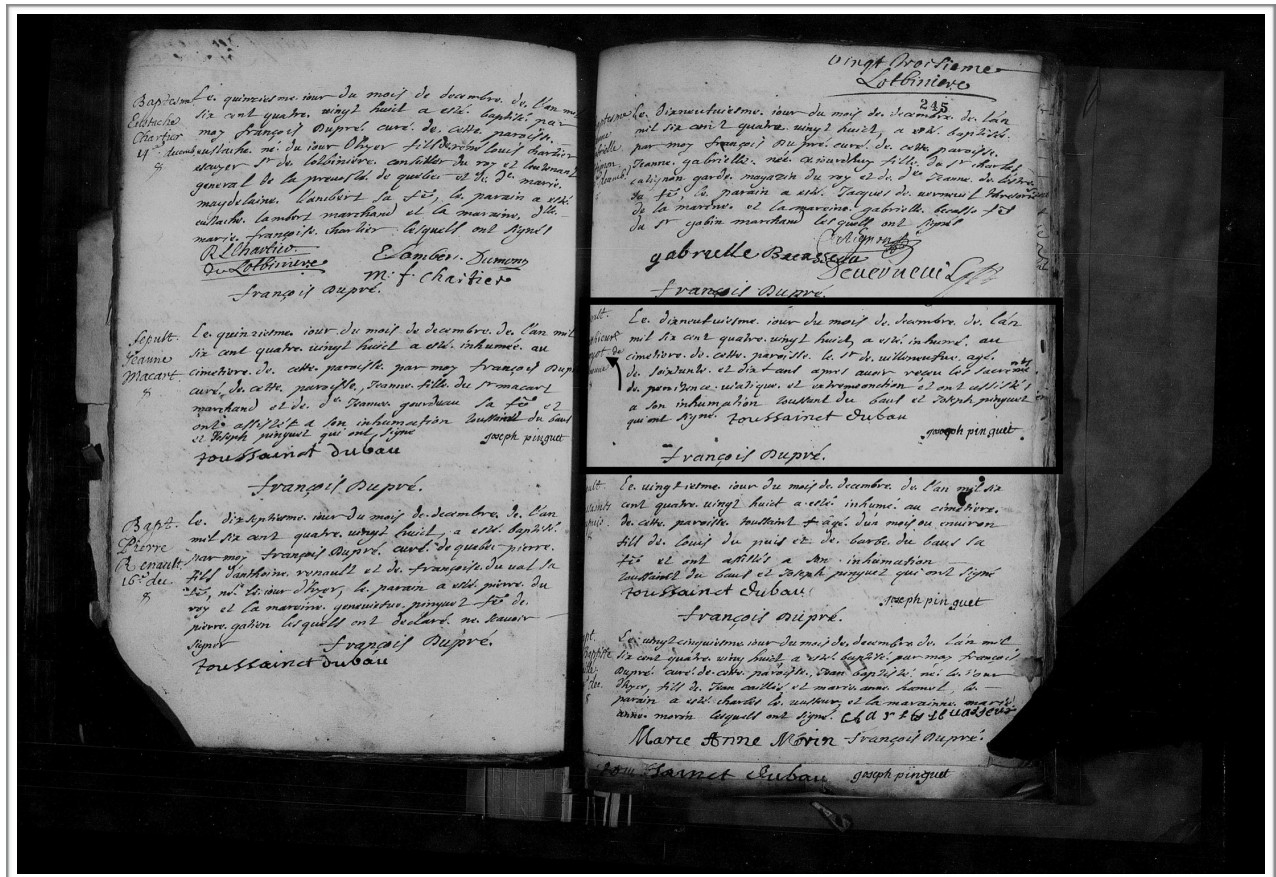 Baptesme Le quinziesme iour du mois de decembre de l'an mil
Eustache six cent quatre vingt huit a esté baptisé par
Chartier moy françois Dupré curé de cette paroisse
eustache né du iour d'hyer fils de rené louis chartier
escuyer sr de lotbiniere conseiller du roy et lieutenant
general de la preuosté de quebec et de de marie
magdelaine lambert sa fe, le parain a esté
eustache lambert marchand et la maraine, dlle
marie françoise chartier lesquels ont signés
R L Chartier
De Lotbiniere
E Lambert Dumont
m. f. Chartier
françois Dupré.
Sepult. Le quinziesme iour du mois de decembre de l'an mil
Jeanne six cent quatre vingt huit a esté inhumée au
Macart cimetiere de cette paroisse par moy françois Dupré
8 curé de cette paroisse, Jeanne fille du sr macart
marchand et de de Jeanne gourdeau sa fe et
ont assisté a son inhumation toussaint du baus
et Joseph pinguet qui ont signé
joseph pinguet
toussainct dubau
françois Dupré.
Bapt. Le dixseptiesme iour du mois de decembre de l'an
Pierre mil six cent quatre vingt huit, a esté baptisé
Renault par moy françois Dupré curé de quebec pierre
16e du fils d'anthoine renault et de françoise du val sa
8 fe, né le iour d'hyer, le parain a esté pierre du
roy et la maraine geneuieve pinguet fe de
pierre gatien lesquels ont declaré ne scauoir
signer
françois Dupré.
toussainct dubau
vingt troisieme
Lotbiniere
245
Le dixneufuiesme iour du mois de decembre de l'an
mil six cent quatre vingt huit, a esté baptisée
par moy françois Dupré curé de cette paroisse
Jeanne gabrielle née ce iourdhuy fille du sr charles
catignon garde magazin du roy et de de Jeanne de
sa fe, le parain a esté Jacques de verneuil
de la marine et la maraine gabrielle fe
du sr gobin marchand lesquels ont signés
Catignon
gabrielle Bacasseau
Deuerneuil
françois Dupré.
Le dixneufuiesme iour du mois de decembre de l'an
mil six cent quatre vingt huit a esté inhumé au
cimetiere de cette paroisse le sr de villeneufue agé
de soixante et dix ans apres auoir receu les sacrements
de penitence viatique et extremonction et ont assistés
a son inhumation toussaint du baus et Joseph pinguet
qui ont signe toussainct dubau
joseph pinguet
françois Dupré.
Le vingtiesme iour du mois de decembre de l'an mil six
cent quatre vingt huit a esté inhumé au cimetiere
de cette paroisse toussaint agé d'un mois ou environ
fils de louis du puis et de barbe du baus sa
fe et ont assistés a son inhumation
toussaint du baus et Joseph pinguet qui ont signé
toussainct dubau
joseph pinguet
françois Dupré.
Le vingt cinquiesme iour du mois de decembre de l'an mil
six cent quatre vingt huit a esté baptisé par moy françois
Dupré curé de cette paroisse, Jean baptiste né le iour
d'hyer, fils de Jean caillés et marie anne hamel, le
parain a esté charles le vasseur et la marainne marie
anne morin lesquels ont signé charles levasseur
Marie Anne Morin françois Dupré.
toussainct dubau joseph pinguet